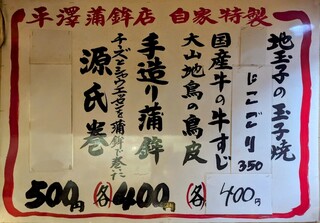 平澤蒲鉾店 自家特製
地玉子の玉子焼
にこごり 350
国産牛の牛すじ
大山地鳥の鳥皮
手造り蒲鉾
チーズとシャウエッセンを蒲鉾で巻いた
源氏巻
400円
各400円
各500円